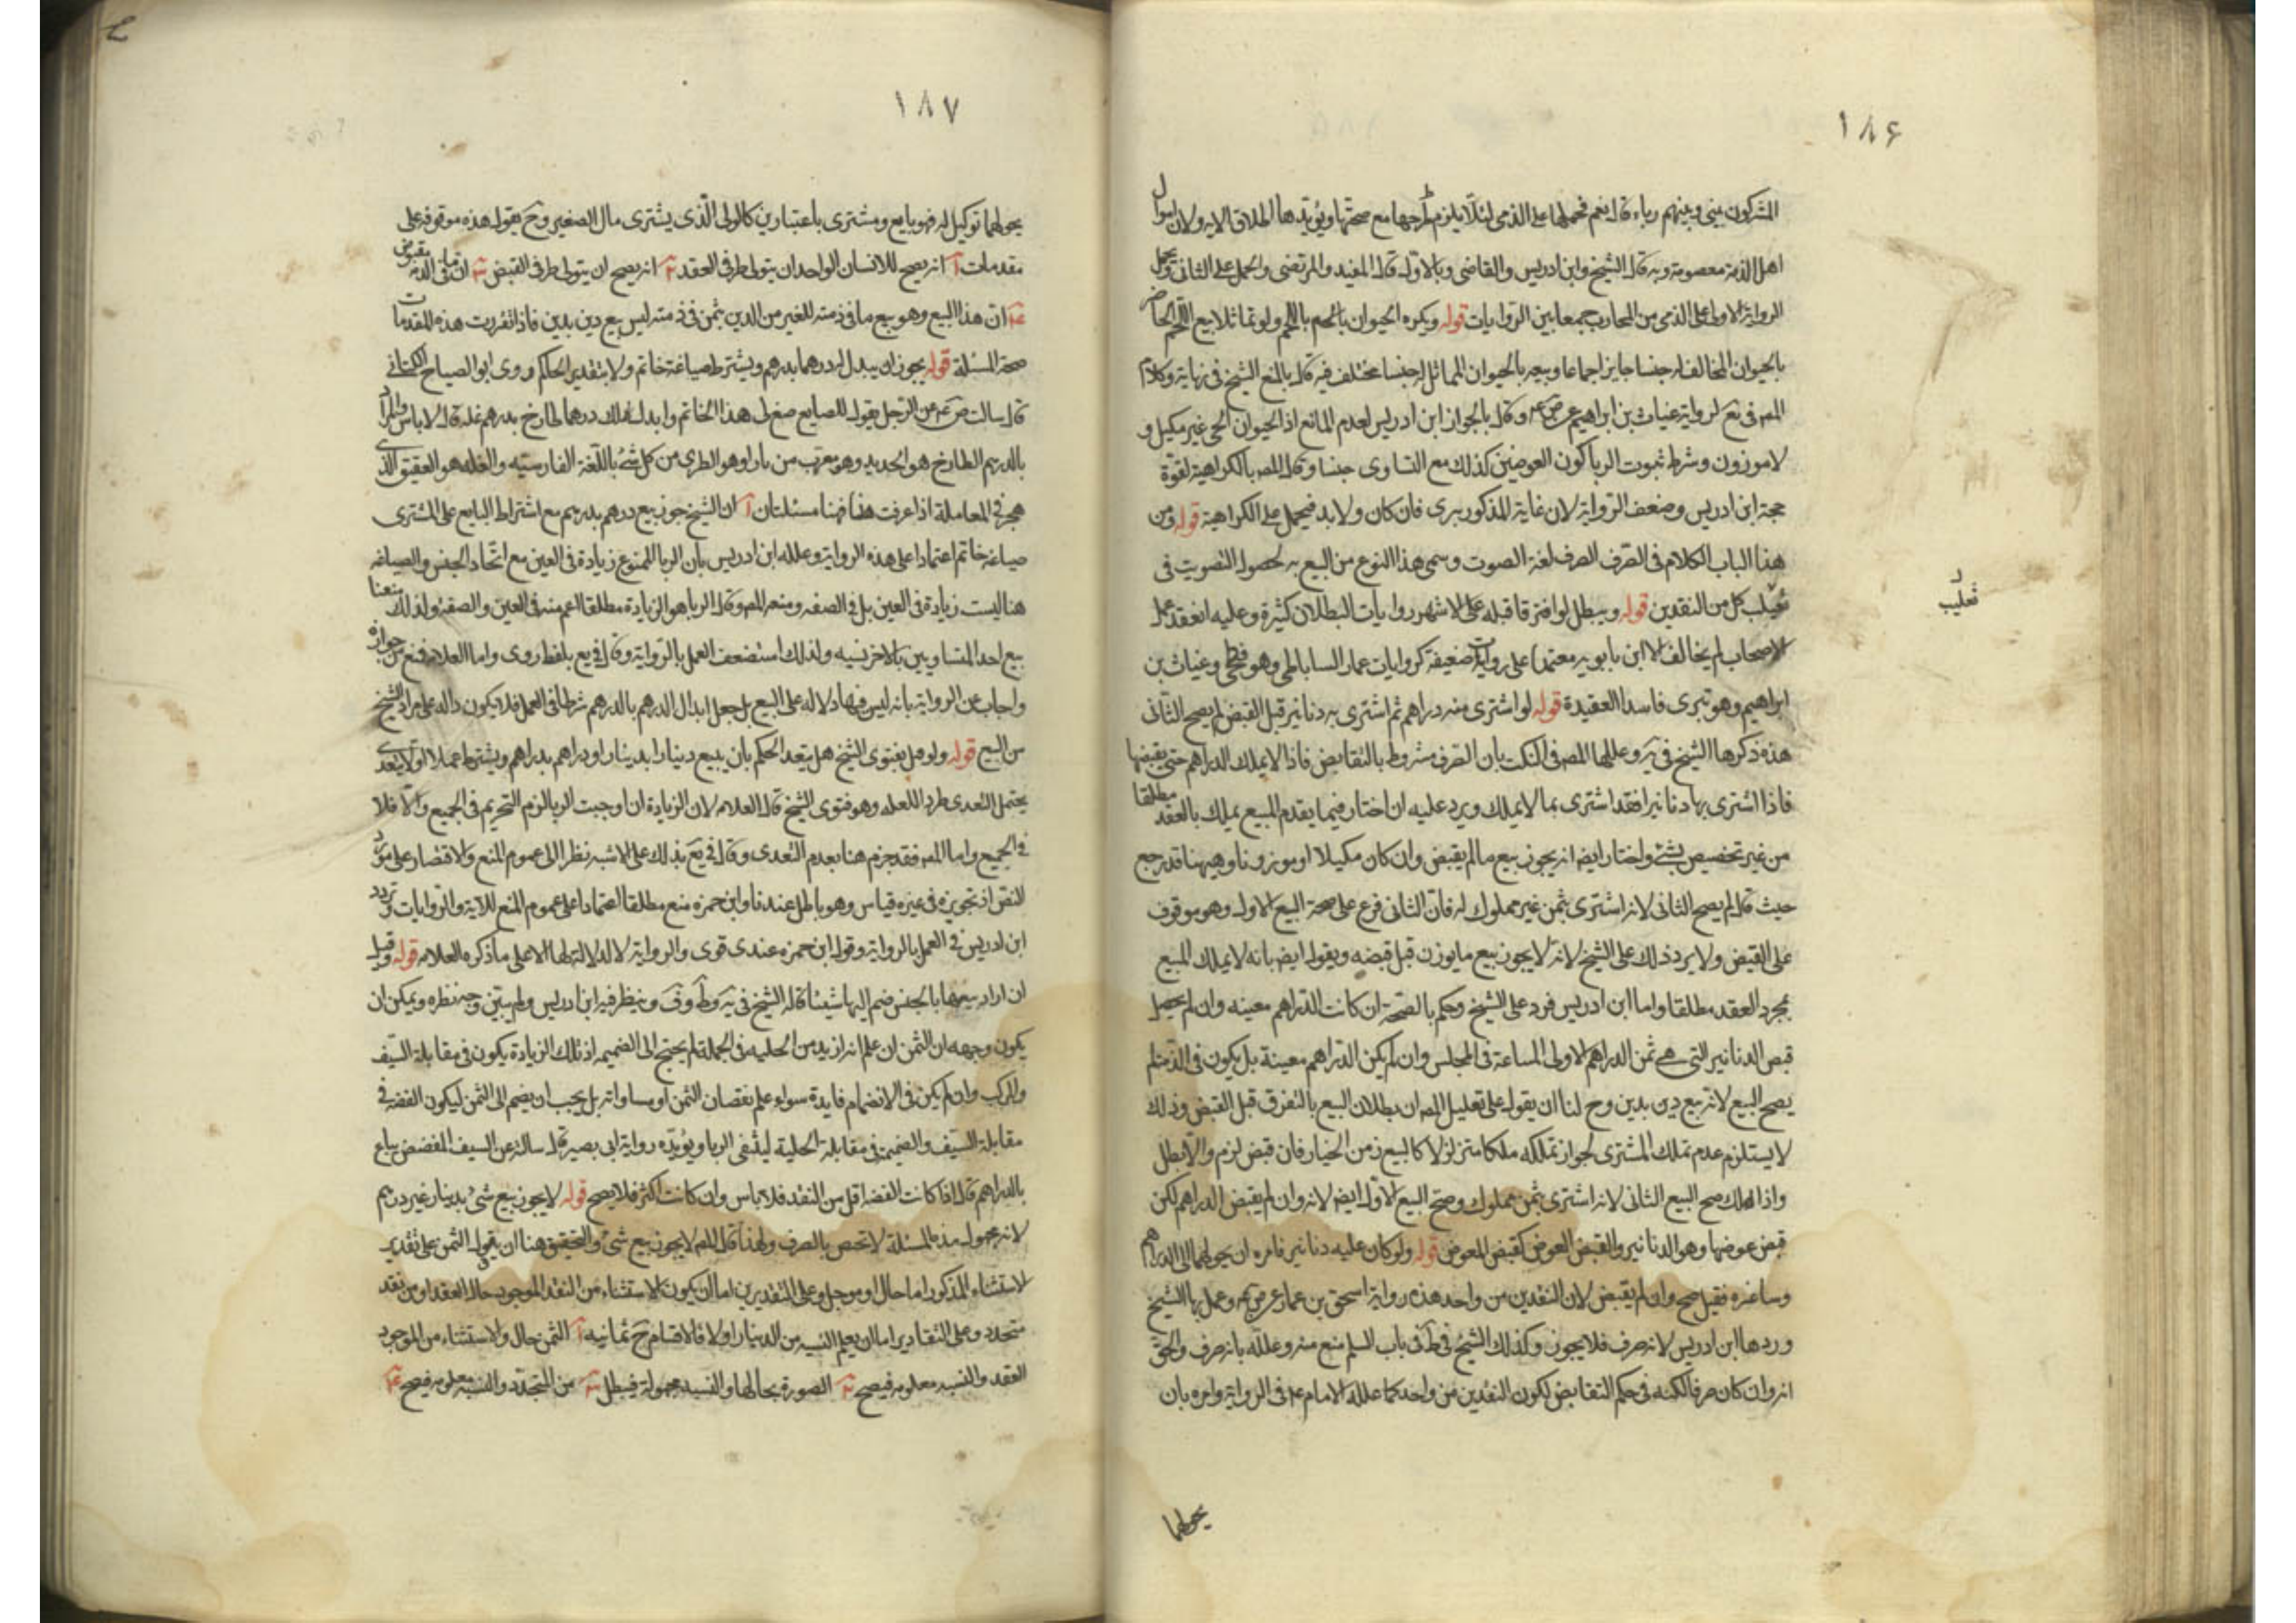 ١٨۶
المشركون بيني وبينهم رباء قال نعم فحملها على الذمي لئلا يلزم طرحها مع صحتها ويؤيدها اطلاق الاية ولان اموال
اهل الذمة معصومة وبه قال الشيخ وابن ادريس والقاضي وبالاول قال المفيد والمرتضى والحمل على الثانى وتحمل
الرواية الاولى على الذمي من المحارب جمعا بين الروايات قوله ويكره الحيوان باللحم ولو تماثلا بيع اللحم الحاضر
بالحيوان المخالف له جنسا جايز اجماعا وبيعه بالحيوان المماثل له جنسا مختلف فيه قال بالمنع الشيخ في نهاية وكلام
المص في يع لرواية غياث بن ابراهيم عن ص ع م وقال بالجواز ابن ادريس لعدم المانع اذ الحيوان الحي غير مكيل و
لا موزون وشرط ثبوت الربا كون العوضين كذلك مع التساوى جنسا وقال المص بالكراهية لقوة
حجة ابن ادريس وضعف الرواية لان غاية المذكور بترى فان كان ولا بد فيحمل على الكراهية قوله ومن
هذا الباب الكلام فى الصرف الصرف لغة الصوت وسمى هذا النوع من البيع به لحصول التصويت في
تقليب كل من النقدين قوله ويبطل لو افترقا قبله على الاشهر روايات البطلان كثيرة وعليه انعقد عمل
تقليب
الاصحاب لم يخالف الا ابن بابويه معتمدا على روايات ضعيفة كروايات عمار الساباطي وهو فطحى وغياث بن
ابراهيم وهو تبرى فاسد العقيدة قوله لو اشترى منه دراهم ثم اشترى به دنانير قبل القبض لم يصح الثانى
هذه ذكرها الشيخ في يه وعللها المص فى النكت بان الصرف مشروط بالتقابض فاذا لا يملك الدراهم حتى يقبضها
فاذا اشترى بها دنانير فقد اشترى بما لا يملك ويرد عليه ان اختار فيما يقدم المبيع يملك بالعقد مطلقا
من غير تخصيص بشئ واختار ايضا انه يجوز بيع ما لم يقبض وان كان مكيلا او موزونا وهيهنا قد رجع
حيث قال لم يصح الثانى لانه اشترى بثمن غير مملوك له فان الثانى فرع على صحة البيع الاول وهو موقوف
على القبض ولا يرد ذلك على الشيخ لانه لا يجوز بيع ما يوزن قبل قبضه ويقول ايضا بانه لا يملك المبيع
بمجرد العقد مطلقا واما ابن ادريس فرد على الشيخ وحكم بالصحة ان كانت الدراهم معينه وان لم يحصل
قبض الدنانير التى هى ثمن الدراهم الاولى الساعة فى المجلس وان لم يكن الدراهم معينة بل يكون فى الذمة لم
يصح البيع لانه بيع دين بدين وح لنا ان يقول على تعليل المص ان بطلان البيع بالتفرق قبل القبض وذلك
لا يستلزم عدم تملك المشترى لجواز تملكه ملكا متزلزلا كالبيع زمن الخيار فان قبض لزم والا بطل
واذا ملك صح البيع الثانى لانه اشترى بثمن مملوك وصح البيع الاول ايضا لانه وان لم يقبض الدراهم لكن
قبض عوضها وهو الدنانير والقبض العوض كقبض المعوض قوله ولو كان عليه دنانير فامره ان يحولها الى الدراهم
وساعره فقبل صح وان لم يقبض لان النقدين من واحد هذه رواية اسحق بن عمار عن ص ع م وعمل بها الشيخ
وردها ابن ادريس لانه صرف فلا يجوز وكذلك الشيخ في ط في باب السلم منع منه وعلله بانه صرف والحق
انه وان كان صرفا لكنه فى حكم التقابض لكون النقدين من واحد كما علله الامام ع م فى الرواية وامره بان
يحولها
١٨٧
يحولها توكيل له فهو بايع ومشترى باعتبارين كالولى الذى يشترى مال الصغير وح يقول هذه موقوفة على
مقدمات ا انه يصح للانسان الواحد ان يتولى طرفى العقد ٢ انه يصح ان يتولى طرفى القبض ٣ ان ما فى الذمة مقبوض
٤ ان هذا البيع وهو بيع ما فى ذمته للغير من الدين بثمن فى ذمته ليس بيع دين بدين فاذا تقررت هذه المقدمات
صحة المسئلة قوله يجوز ان يبدل له درهما بدرهم ويشترط صياغة خاتم ولا يتعدى الحكم روى ابو الصباح الكنانى
قال سالت ص ع م عن الرجل يقول للصايغ صغ لى هذا الخاتم وابدل لك درهما طازج بدرهم غله قال لا باس والمراد
بالدرهم الطازج هو الحديد وهو معرب من تازا وهو الطرى من كل شئ باللغة الفارسيه والغله هو العقيق الذى
هجر فى المعاملة اذا عرفت هذا فهنا مسئلتان ا ان الشيخ جوز بيع درهم بدرهم مع اشتراط البايع على المشترى
صياغة خاتم اعتمادا على هذه الرواية وعلله ابن ادريس بان الربا الممنوع زيادة فى العين مع اتحاد الجنس والصياغه
هنا ليست زيادة فى العين بل فى الصفه ومنعه المص وقال الربا هو الزيادة مطلقا اعم منه فى العين والصفة ولذلك منعنا
بيع احد المتساويين بالاخر نسيه ولذلك استضعف العمل بالرواية وقال فى يع بلفظ روى واما العلامه فمنع من جوازه
واجاب عن الرواية بانه ليس فيها دلاله على البيع بل جعل ابدال الدرهم بالدرهم شرطا فى العمل فلا يكون داله على مراد الشيخ
من البيع قوله ولو عمل بفتوى الشيخ هل يتعد الحكم بان يبيع دينارا بدينار او دراهم بدراهم ويشترط عملا او لا يتعدى
يحتمل التعدى طردا للعله وهو فتوى الشيخ قال العلامه لان الزيادة ان اوجبت الربا لزم التحريم فى الجميع والا فلا
فى الجميع واما المص فقد جزم هنا بعدم التعدى وقال فى يع بذلك على الاشبه نظرا الى عموم المنع والاقتصار على مورد
النص اذ تجويزه فى غيره قياس وهو باطل عندنا وابن حمزه منع مطلقا اعتمادا على عموم المنع للاية والروايات وتردد
ابن ادريس فى العمل بالرواية وقول ابن حمزه عندى قوى والرواية لا دلالة لها الا على ما ذكره العلامه قوله وقيل
ان اراد بيعها بالجنس ضم اليها شيئا قاله الشيخ فى يه وط وف ونظر فيه ابن ادريس ولم يبين وجه نظره ويمكن ان
يكون وجهه ان الثمن ان علم انه ازيد من الحليه فى الجملة لم يحتج الى الضميمه اذ تلك الزيادة يكون فى مقابلة السيف
والمركب وان لم يكن فى الانضمام فايدة سواء علم نقصان الثمن او مساواته بل يجب ان يضم الى الثمن ليكون الفضه فى
مقابلة السيف والضميمة فى مقابلة الحلية لينتفى الربا ويؤيده رواية ابى بصير قال سالته عن السيف المفضض يباع
بالدراهم قال اذا كانت الفضه اقل من النقد فلا باس وان كانت اكثر فلا يصح قوله لا يجوز بيع شئ بدينار غير درهم
لانه مجهول هذه المسئلة لا تختص بالصرف ولهذا قال المص لا يجوز بيع شئ والتحقيق هنا ان يقول الثمن على تقدير
الاستثناء المذكور اما حال او موجل وعلى التقديرين اما ان يكون الاستثناء من النقد الموجود حال العقد او من نقد
متجدد وعلى التقادير اما ان يعلم النسبه من الدينار او لا فالاقسام ح ثمانيه ا الثمن حال والاستثناء من الموجود
العقد والنسبه معلومه فيصح ٢ الصورة بحالها والنسبه مجهولة فيبطل ٣ من المتجدد والنسبه معلومه فيصح ٤